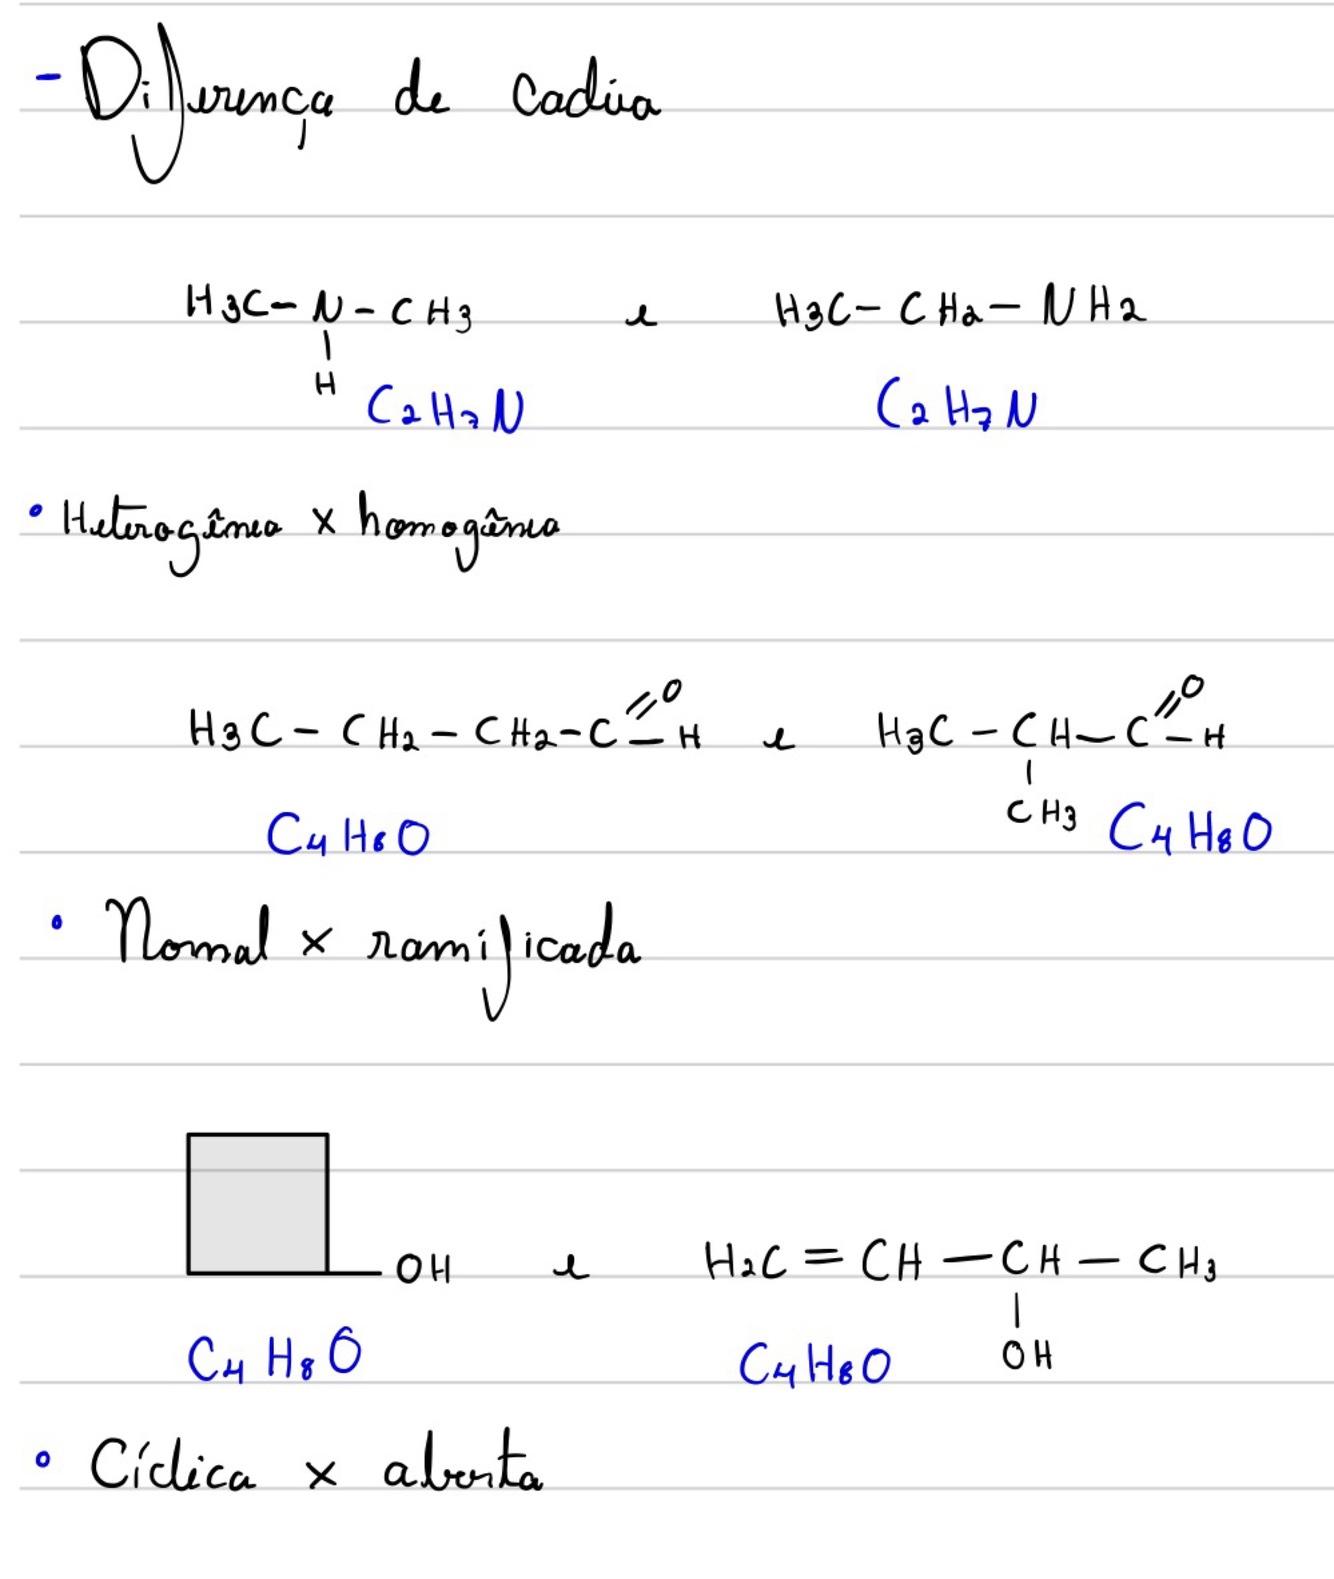 - Diferença de cadeia
H3C - N - CH3 e H3C - CH2 - NH2
H
C2H7N C2H7N
• Heterogênea x homogênea
O O
H3C - CH2 - CH2 - C - H e H3C - CH - C - H
CH3
C4H8O C4H8O
• Normal x ramificada
OH e H2C = CH - CH - CH3
OH
C4H8O C4H8O
• Cíclica x aberta